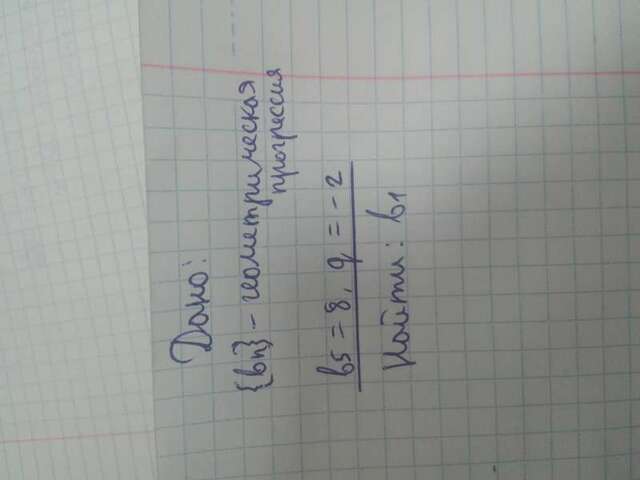 Дано:
{bn} - геометрическая
прогрессия
b5 = 8, q = -2
Найти: b1